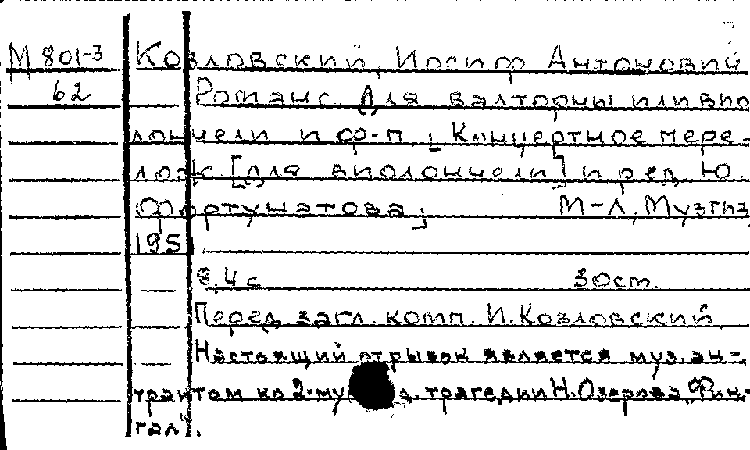 М 801-3 Козловский, Иосиф Антонович
62 Романс. Для валторны или вио
лончели и ф-п. [Концертное пере-
лож. [для виолончели] и ред. Ю.
Фортунатова] М-Л, Музгиз,
195
8, 4 с 30 ст.
Перед загл. комп. И. Козловский
Настоящий отрывок является муз. ан-
трактом ко 2-му д. трагедии Н. Озерова „Фин-
гал".